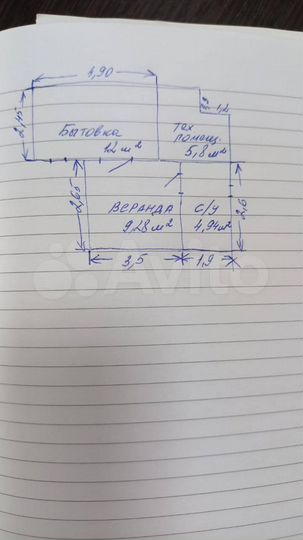 4,90
2,45
1,2
Бытовка
12 м²
Тех
помещ.
5,8 м²
2,65
ВЕРАНДА
9,28 м²
С/У
4,94 м²
2,6
3,5
1,9
Avito